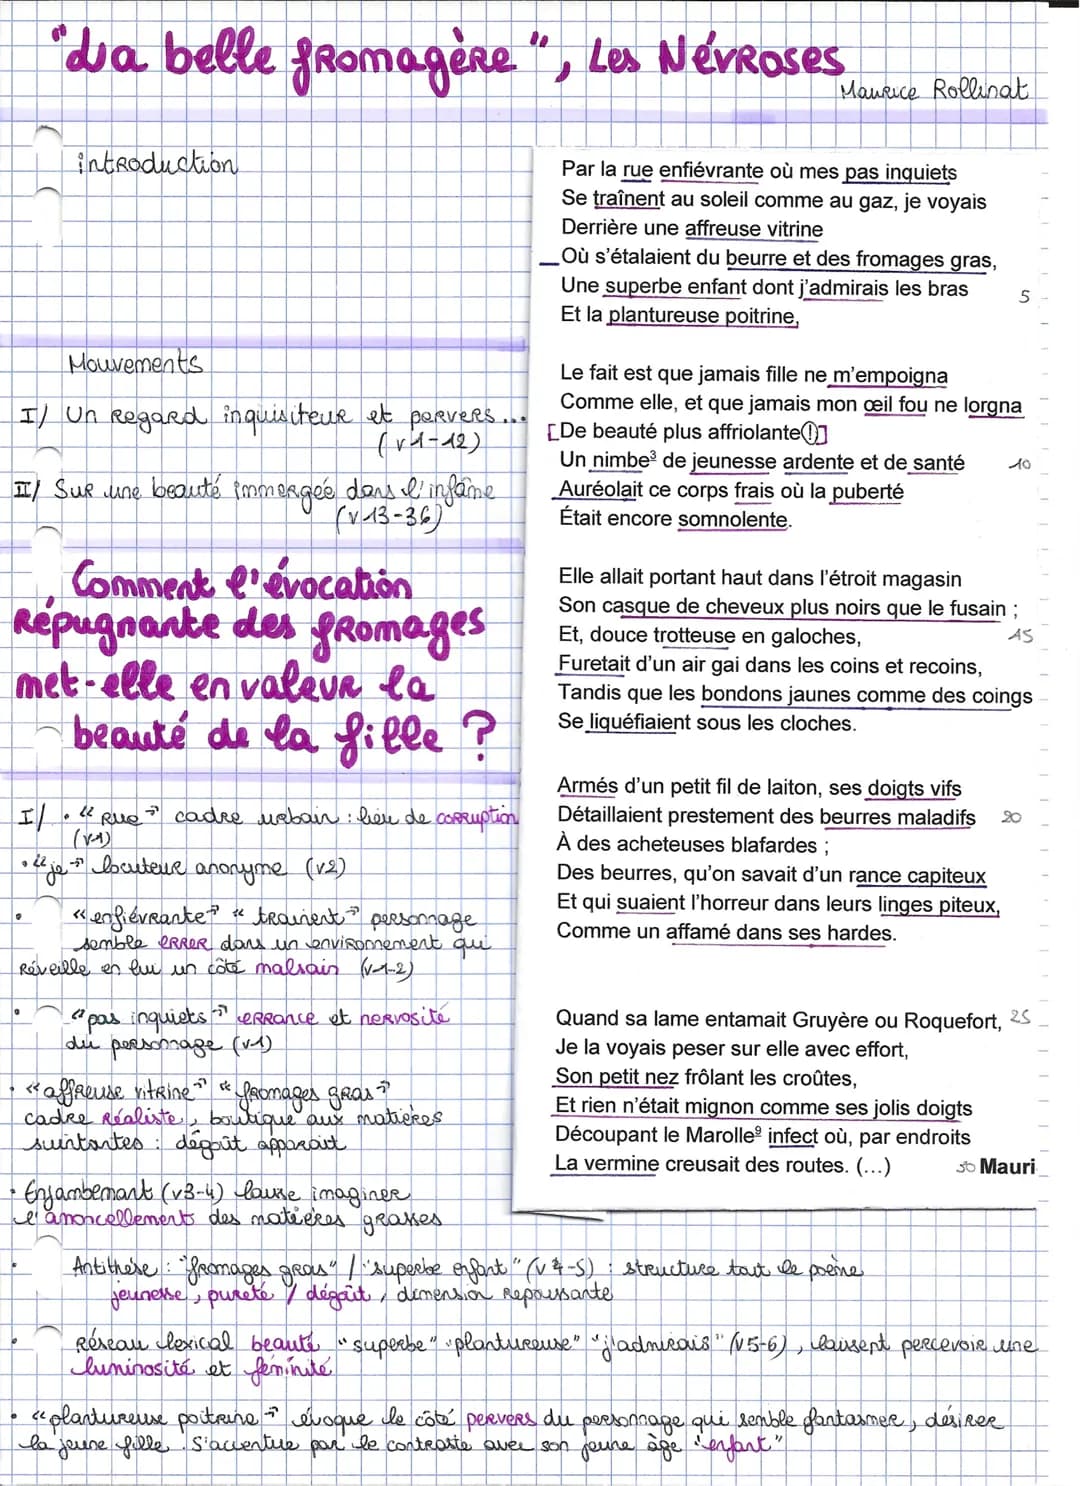 "La belle fromagère", Les Névroses
Maurice Rollinat
introduction
Mouvements
I/ Un regard inquisiteur et pervers...
(v1-12)
II/ Sur une beauté immergée dans l'infâme
(v13-36)
Comment l'évocation
répugnante des fromages
met-elle en valeur la
beauté de la fille ?
Par la rue enfiévrante où mes pas inquiets
Se traînent au soleil comme au gaz, je voyais
Derrière une affreuse vitrine
Où s'étalaient du beurre et des fromages gras,
Une superbe enfant dont j'admirais les bras 5
Et la plantureuse poitrine,
Le fait est que jamais fille ne m'empoigna
Comme elle, et que jamais mon œil fou ne lorgna
[De beauté plus affriolante !]
Un nimbe³ de jeunesse ardente et de santé 10
Auréolait ce corps frais où la puberté
Était encore somnolente.
Elle allait portant haut dans l'étroit magasin
Son casque de cheveux plus noirs que le fusain ;
Et, douce trotteuse en galoches, 15
Furetait d'un air gai dans les coins et recoins,
Tandis que les bondons jaunes comme des coings
Se liquéfiaient sous les cloches.
Armés d'un petit fil de laiton, ses doigts vifs
Détaillaient prestement des beurres maladifs 20
À des acheteuses blafardes ;
Des beurres, qu'on savait d'un rance capiteux
Et qui suaient l'horreur dans leurs linges piteux,
Comme un affamé dans ses hardes.
Quand sa lame entamait Gruyère ou Roquefort, 25
Je la voyais peser sur elle avec effort,
Son petit nez frôlant les croûtes,
Et rien n'était mignon comme ses jolis doigts
Découpant le Marolle⁹ infect où, par endroits
La vermine creusait des routes. (...) 30 Mauri
I/ • "Rue" cadre urbain : lieu de corruption
(v1)
• "je" locuteur anonyme (v2)
• "enfiévrante" "trainent" personnage
semble errer dans un environnement qui
réveille en lui un côté malsain (v1-2)
• "pas inquiets" errance et nervosité
du personnage (v1)
• "affreuse vitrine" "fromages gras"
cadre réaliste, boutique aux matières
suintantes : dégoût apparait
• Enjambemant (v3-4) laisse imaginer
l'amoncellements des matières grasses
• Antithèse : "fromages gras" / "superbe enfant" (v4-5) : structure tout le poème
jeunesse, pureté / dégoût, dimension repoussante
• Réseau lexical beauté "superbe" "plantureuse" "j'admirais" (v5-6), laissent percevoir une
luminosité et féminité
• "plantureuse poitrine" évoque le côté pervers du personnage qui semble fantasmer, désirer
la jeune fille. S'accentue par le contraste avec son jeune âge "enfant"